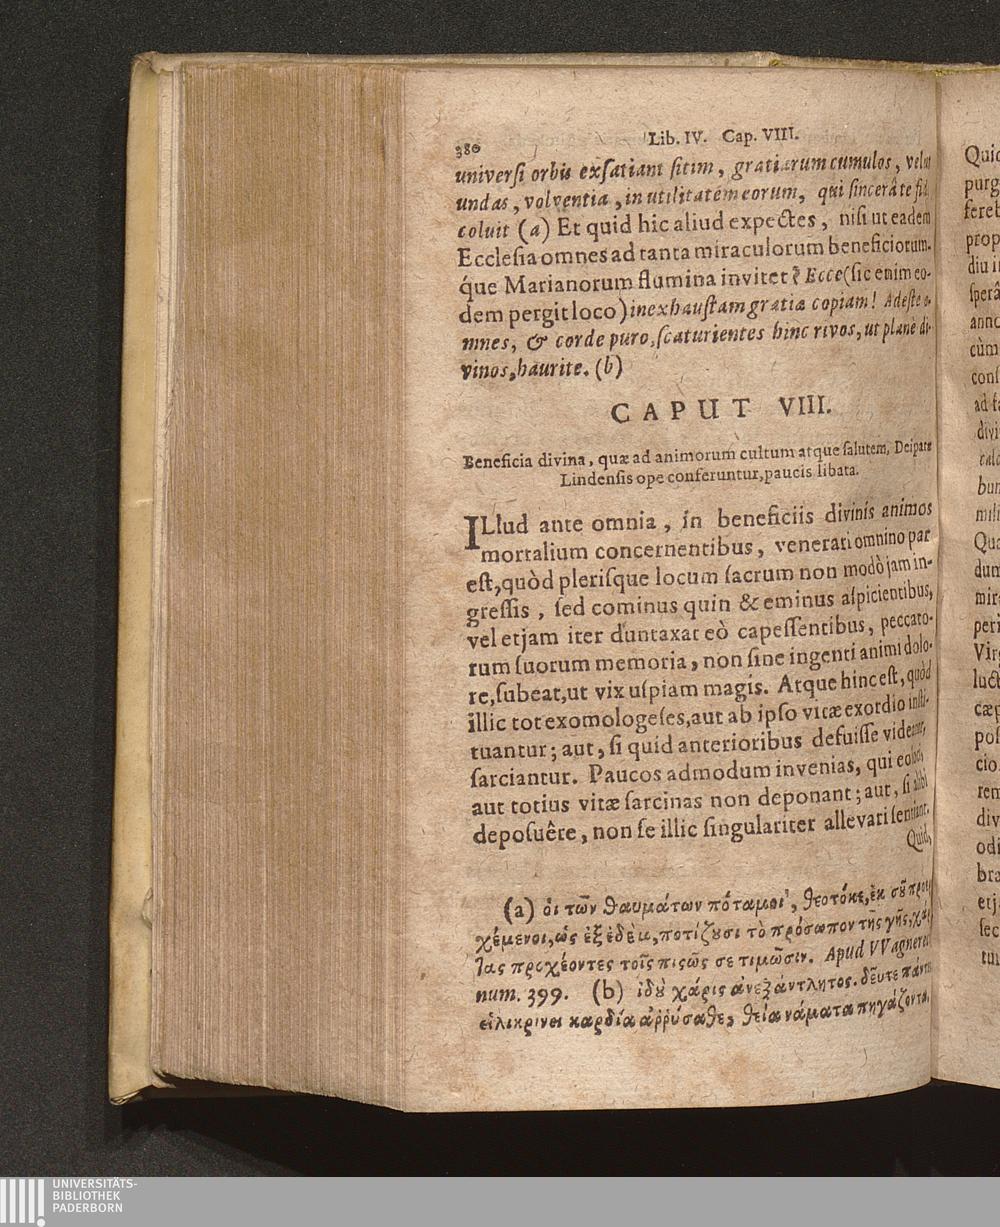 380 Lib. IV. Cap. VIII.
universi orbis exſatiant ſitim, gratiarum cumulos, velut
undas, volventia, in utilitatem eorum, qui ſincerâ te fide
coluit (a) Et quid hic aliud expectes, niſi ut eadem
Eccleſia omnes ad tanta miraculorum beneficiorum-
q́ue Marianorum flumina invitet? Ecce (ſic enim eo-
dem pergit loco) inexhauſtam gratiæ copiam! Adeſte o-
mnes, & corde puro, ſcaturientes hinc rivos, ut planè di-
vinos, haurite. (b)
CAPUT VIII.
Beneficia divina, quæ ad animorum cultum atque ſalutem, Deiparæ
Lindenſis ope conferuntur, paucis libata.
ILlud ante omnia, in beneficiis divinis animos
mortalium concernentibus, venerari omnino par
eſt, quòd pleriſque locum ſacrum non modò jam in-
greſſis, ſed cominus quin & eminus aſpicientibus,
vel etjam iter duntaxat eò capeſſentibus, peccato-
rum ſuorum memoria, non ſine ingenti animi dolo-
re, ſubeat, ut vix uſpiam magis. Atque hinc eſt, quòd
illic tot exomologeſes, aut ab ipſo vitæ exordio inſti-
tuantur; aut, ſi quid anterioribus defuiſſe videatur,
ſarciantur. Paucos admodum invenias, qui eo loci,
aut totius vitæ ſarcinas non deponant; aut, ſi alibi
depoſuêre, non ſe illic ſingulariter allevari ſentiant.
Quid,
(a) ὁι τῶν θαυμάτων πόταμοι, θεοτόκε, ἐκ σοῦ προε
χέμενοι, ὡς ἐξ ἐδὲμ, ποτίζουσι τὸ πρόσωπον τῆς γῆς, χάρι
τας προχέοντες τοῖς πιςῶς σε τιμῶσιν. Apud VVagnereck
num. 399. (b) ἰδοὺ χάρις ἀνεξάντλητος. δεῦτε πάντες
εἰλικρινει καρδία ἀῤῥύσαθε, θεία νάματα πηγάζοντα.
Quid
purg
fereb
prop
diu i
ſperâ
anno
cùm
conſ
UNIVERSITÄTS-
BIBLIOTHEK
PADERBORN